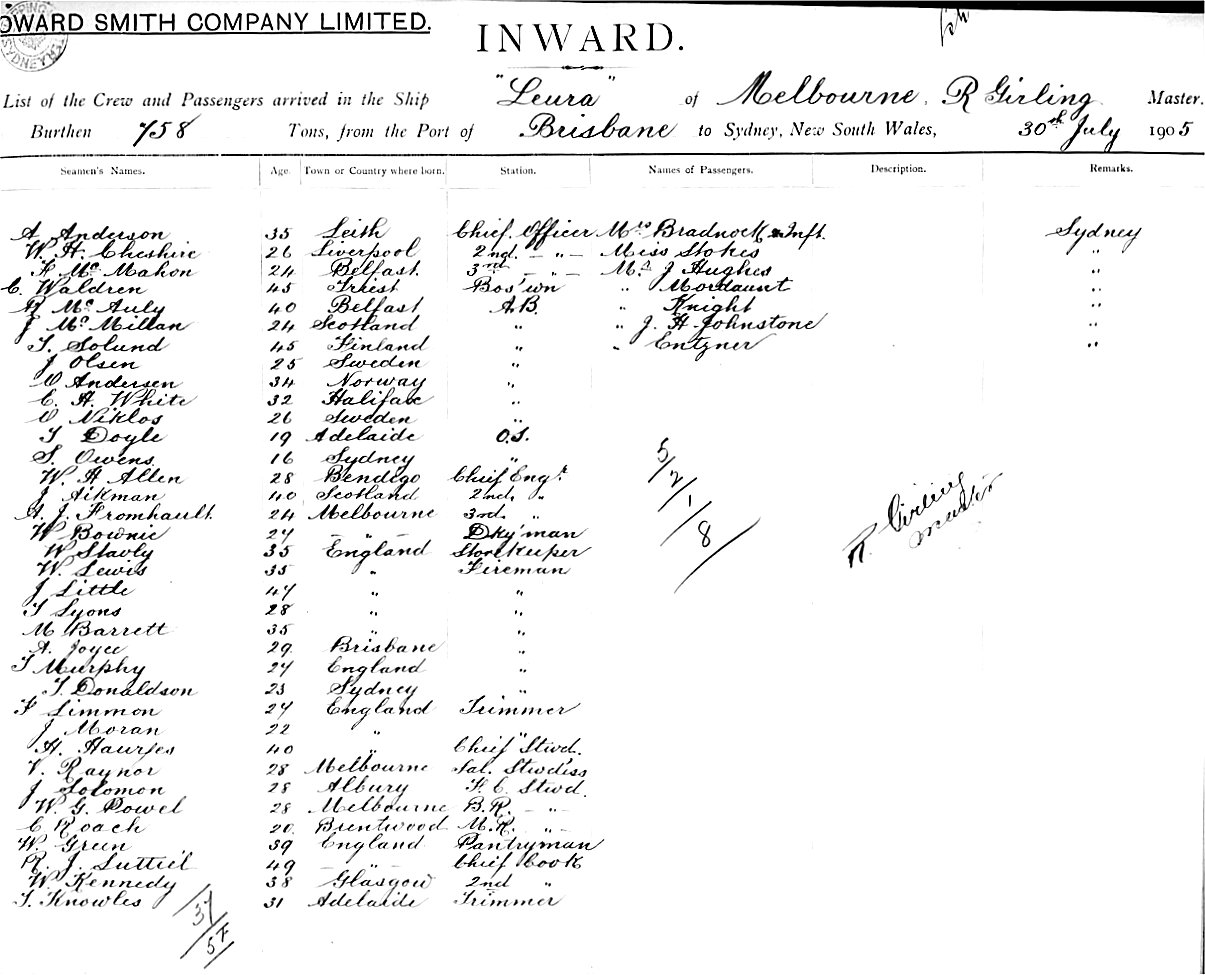 OWARD SMITH COMPANY LIMITED.
INWARD.
List of the Crew and Passengers arrived in the Ship "Leura" of Melbourne, R Girling Master.
Burthen 758 Tons, from the Port of Brisbane to Sydney, New South Wales, 30th July 1905
Seamen's Names. Age. Town or Country where born. Station. Names of Passengers. Description. Remarks.
A Anderson 35 Leith Chief Officer Mrs Bradnock & Inft. Sydney
W. H. Cheshire 26 Liverpool 2nd. – " – Miss Stokes "
F Mc Mahon 24 Belfast 3rd – " – Mr J Hughes "
C. Waldren 45 Triest Bos'wn " Mordaunt "
A Mc Auly 40 Belfast A.B. " Knight "
J McMillan 24 Scotland " " J. H. Johnstone "
T. Solund 45 Finland " " Entzner "
J Olsen 25 Sweden "
O Andersen 34 Norway "
C. H. White 32 Halifax "
O Niklos 26 Sweden "
T Doyle 19 Adelaide O.S.
S. Owens 16 Sydney "
W. H Allen 28 Bendigo Chief Engr.
J Aikman 40 Scotland 2nd. "
A. J. Fromhault 24 Melbourne 3rd. "
W Bownie 24 – " – Dky'man
W Stavly 35 England Storekeeper
W. Lewis 35 " Fireman
J Little 47 " "
T Lyons 28 " "
M Barrett 35 " "
A. Joyce 29 Brisbane "
T Murphy 27 England "
T. Donaldson 23 Sydney "
F Limmon 27 England Trimmer
J Moran 22 " "
H. 40 " Chief Stwd.
V. Raynor 28 Melbourne Sal. Stwdiss
J Solomon 28 Albury F. C. Stwd.
W. G. Powel 28 Melbourne B.R. – " –
C Roach 20. Brentwood M.R. " –
W. Green 39 England Pantryman
R. J. Suttiel 49 – " – Chief Cook
W. Kennedy 38 Glasgow 2nd "
T. Knowles 31 Adelaide Trimmer
5/2/1/8
R. Girling
master
37